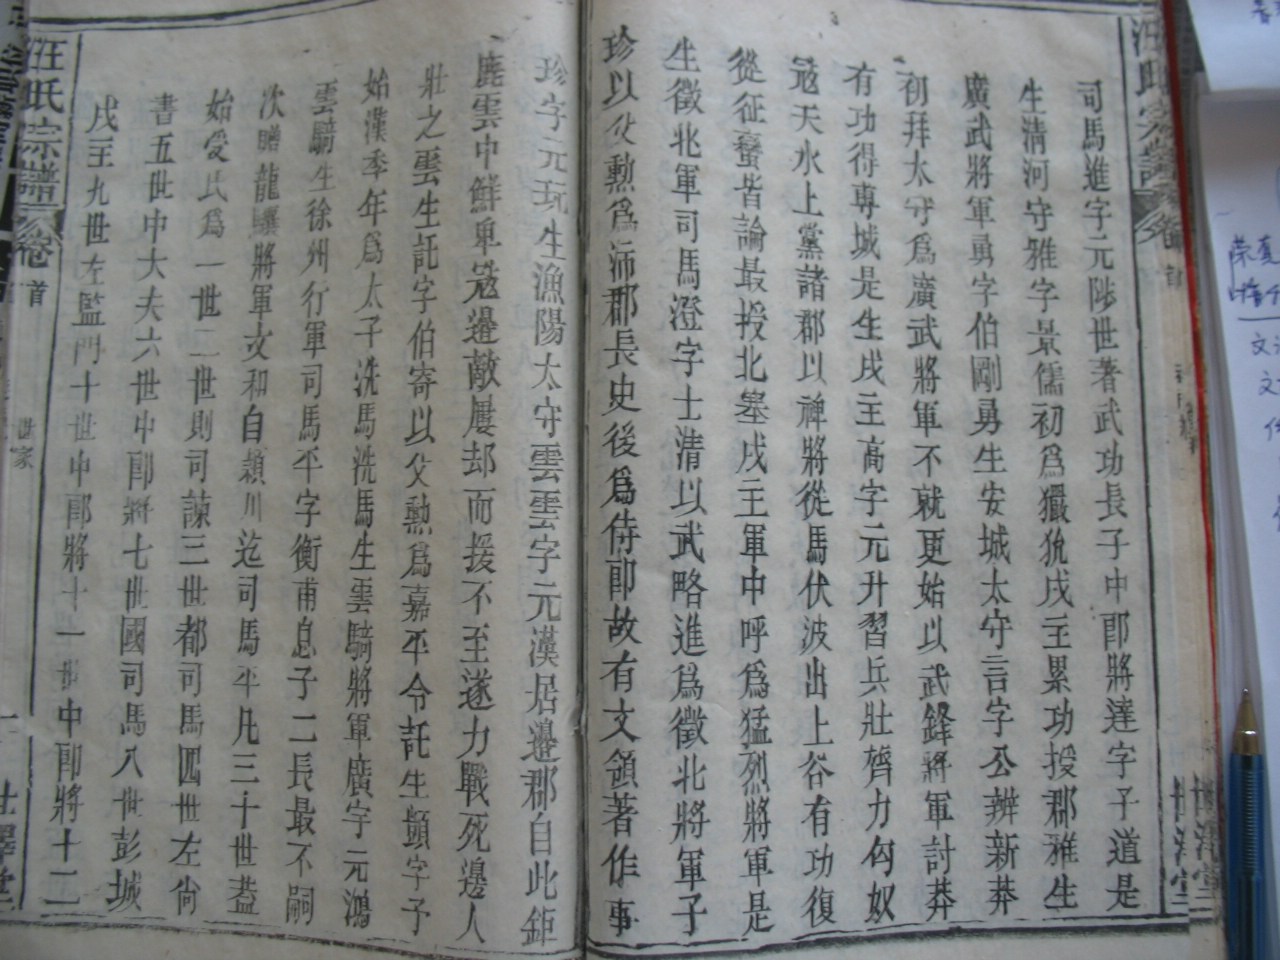 司馬進字元陟世著武功長子中郎將達字子道是
生清河守雅字景儒初為玁狁戍主累功授郡雅生
廣武將軍勇字伯剛勇生安城太守言字公辨新莽
初拜太守為廣武將軍不就更始以武鋒將軍討莽
有功得專城是生戍主高字元升習兵壯齊力匈奴
寇天水上黨諸郡以裨將從馬伏波出上谷有功復
從征蠻皆論最授北塞戍主軍中呼為猛烈將軍是
生徵北軍司馬澄字士清以武略進為徵北將軍子
珍以父勲為沛郡長史後為侍郎故有文領著作事
珍字元玩生漁陽太守雲雲字元漢居邊郡自此鉅
鹿雲中鮮卑寇邊敵屢却而援不至遂力戰死邊人
壯之雲生託字伯寄以父勲為嘉平令託生顗字予
始漢季年為太子洗馬洗馬生雲騎將軍廣字元鴻
雲騎生徐州行軍司馬平字衡甫息子二長最不嗣
次贈龍驤將軍文和自潁川迄司馬平凡三十世葢
始受氏為一世二世則司諫三世都司馬四世左尚
書五世中大夫六世中郎將七世國司馬八世彭城
戍主九世左監門十世中郎將十一世中郎將十二
汪氏宗譜 卷首 世家